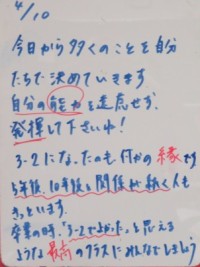 4/10
今日から多くのことを自分
たちで決めていきます
自分の能力を遠慮せず、
発揮して下さいね!
3-2になったのも何かの縁です
5年後、10年後と関係が続く人も
きっといます。
卒業の時、「3-2でよかった」と思える
ような最高のクラスにみんなでしましょう